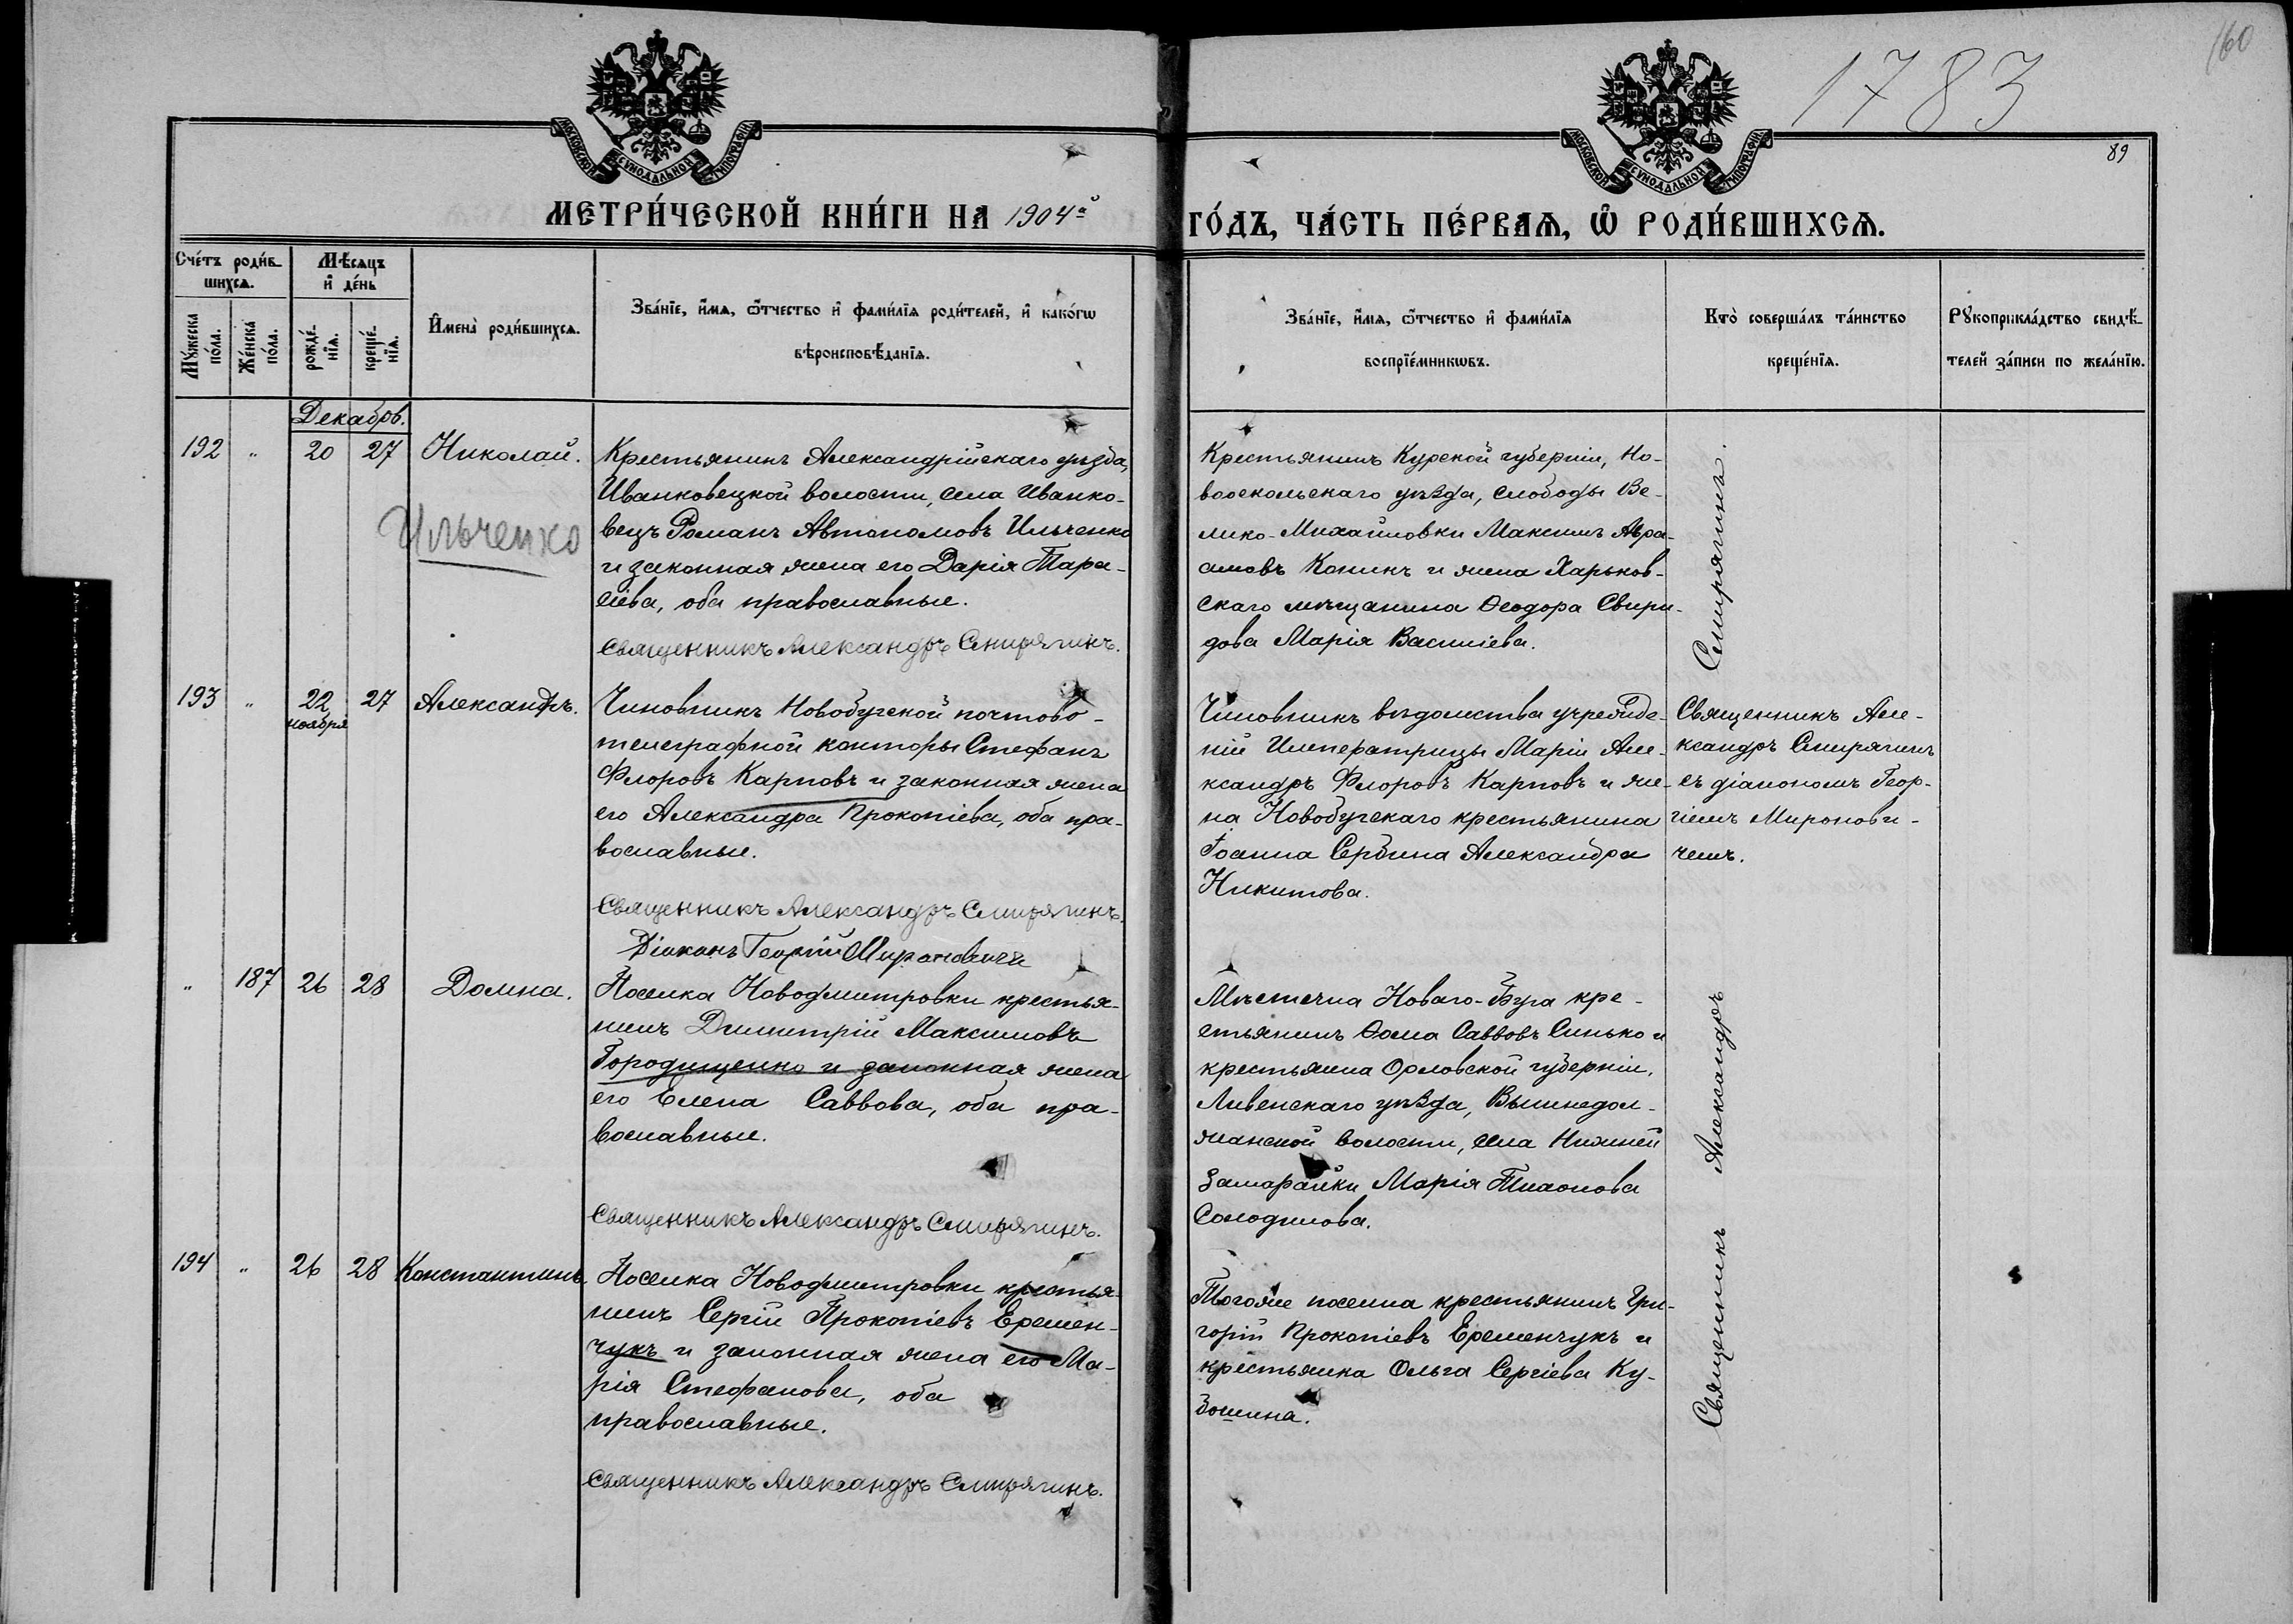 1783
160
89
МОСКОВСКОЙ СѴНОДАЛЬНОЙ ТИПОГРАФІИ
МОСКОВСКОЙ СѴНОДАЛЬНОЙ ТИПОГРАФІИ
МЕТРИ́ЧЕСКОЙ КНИ́ГИ НА 1904й ГО́ДЪ, ЧА́СТЬ ПЕ́РВАѦ, Ѽ РОДИ́ВШИХСѦ.
Сче́тъ роди́в-
шихсѧ.
Мꙋ́жеска
по́ла.
Же́нска
по́ла.
Мѣ́сѧцъ
и҆ де́нь
рожде́-
нїѧ.
креще́-
нїѧ.
И҆мена̀ роди́вшихсѧ.
Зва́нїе, и҆́мѧ, ѻ҆́тчество и҆ фами́лїѧ роди́телей, и҆ како́гѡ
вѣроисповѣ́данїѧ.
Зва́нїе, и҆́мѧ, ѻ҆́тчество и҆ фами́лїѧ
воспрїе́мникѡвъ.
Кто̀ соверша́лъ та́инство
креще́нїѧ.
Рꙋкоприкла́дство свидѣ́-
телей за́писи по жела́нїю.
Декабрь.
192 " 20 27 Николай.
Ильченко
Крестьянинъ Александрійскаго уѣзда,
Иванковецкой волости, села Иванко-
вецъ Романъ Автономовъ Ильченко
и законная жена его Дарія Тара-
сіева, оба православные.
Священникъ Александръ Смирягинъ.
Крестьянинъ Курской губерніи, Но-
вооскольскаго уѣзда, слободы Ве-
лико-Михайловки Максимъ Авра-
амовъ Конинъ и жена Харьков-
скаго мѣщанина Ѳеодора Свири-
дова Марія Василіева.
193 " 22 ноября 27 Александръ.
Чиновникъ Новобугской почтово-
телеграфной конторы Стефанъ
Флоровъ Карповъ и законная жена
его Александра Прокопіева, оба пра-
вославные.
Священникъ Александръ Смирягинъ.
Діаконъ Георгій Мироновичъ
Чиновникъ вѣдомства учрежде-
ній Императрицы Маріи Але-
ксандръ Флоровъ Карповъ и же-
на Новобугскаго крестьянина
Іоанна Сербина Александра
Никитова.
Священникъ Але-
ксандръ Смирягинъ
съ діакономъ Геор-
гіемъ Миронови-
чемъ.
" 187 26 28 Домна.
Поселка Новодмитровки крестья-
нинъ Димитрій Максимовъ
Городищенко и законная жена
его Елена Саввова, оба пра-
вославные.
Священникъ Александръ Смирягинъ.
Мѣстечка Новаго-Буга кре-
стьянинъ Ѳома Саввовъ Синько и
крестьянка Орловской губерніи,
Ливенскаго уѣзда, Вышнедол-
жанской волости, села Нижней
Замарайки Марія Тихонова
Солодилова.
194 " 26 28 Константинъ.
Поселка Новодмитровки крестья-
нинъ Сергій Прокопіевъ Еремен-
чукъ и законная жена его Ма-
рія Стефанова, оба
православные.
Священникъ Александръ Смирягинъ.
Тогоже поселка крестьянинъ Гри-
горій Прокопіевъ Еременчукъ и
крестьянка Ольга Сергіева Ку-
Священникъ Александръ Смирягинъ.